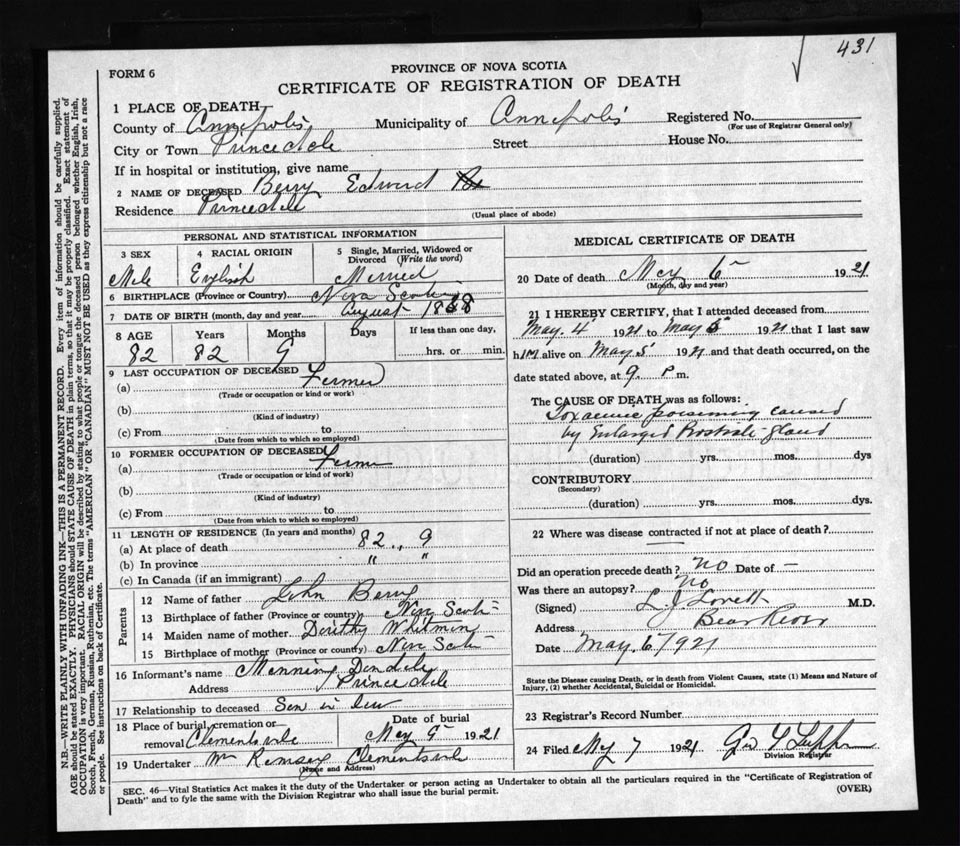 431
PROVINCE OF NOVA SCOTIA
FORM 6
CERTIFICATE OF REGISTRATION OF DEATH
1 PLACE OF DEATH
County of Annapolis Municipality of Annapolis Registered No.
(For use of Registrar General only)
City or Town Princedale Street House No.
If in hospital or institution, give name
2 NAME OF DECEASED Berry Edward
Residence Princedale
(Usual place of abode)
PERSONAL AND STATISTICAL INFORMATION
3 SEX 4 RACIAL ORIGIN 5 Single, Married, Widowed or Divorced (Write the word)
Male English Married
6 BIRTHPLACE (Province or Country) Nova Scotia
7 DATE OF BIRTH (month, day and year) August 1838
8 AGE Years Months Days If less than one day,
82 82 9 hrs. or min.
9 LAST OCCUPATION OF DECEASED
(a) Farmer
(Trade or occupation or kind or work)
(b)
(Kind of industry)
(c) From to
(Date from which to which so employed)
10 FORMER OCCUPATION OF DECEASED
(a) Farmer
(Trade or occupation or kind of work)
(b)
(Kind of industry)
(c) From to
(Date from which to which so employed)
11 LENGTH OF RESIDENCE (In years and months)
(a) At place of death 82 " 9
(b) In province " "
(c) In Canada (if an immigrant)
Parents
12 Name of father John Berry
13 Birthplace of father (Province or country) Nova Scotia
14 Maiden name of mother Dorithy Whitman
15 Birthplace of mother (Province or country) Nova Scotia
16 Informant's name Manning Dondale
Address Princedale
17 Relationship to deceased Son in law
18 Place of burial, cremation or Date of burial
removal Clementsvale May 9 1921
19 Undertaker Wm Ramsay Clementsvale
(Name and Address)
MEDICAL CERTIFICATE OF DEATH
20 Date of death May 6 1921
(Month, day and year)
21 I HEREBY CERTIFY, that I attended deceased from
May 4 1921 to May 5 1921 that I last saw
him alive on May 5 1921 and that death occurred, on the
date stated above, at 9 P m.
The CAUSE OF DEATH was as follows:
Toxaemic poisoning caused
by Enlarged Prostate gland
(duration) yrs. mos. dys
CONTRIBUTORY
(Secondary)
(duration) yrs. mos. dys.
22 Where was disease contracted if not at place of death?
Did an operation precede death? no Date of —
Was there an autopsy? no
(Signed) L. J. Lovett M.D.
Address Bear River
Date May 6/1921
State the Disease causing Death, or in death from Violent Causes, state (1) Means and Nature of
Injury, (2) whether Accidental, Suicidal or Homicidal.
23 Registrar's Record Number
24 Filed May 7 1921
Division Registrar
SEC. 46—Vital Statistics Act makes it the duty of the Undertaker or person acting as Undertaker to obtain all the particulars required in the "Certificate of Registration of
Death" and to fyle the same with the Division Registrar who shall issue the burial permit.
(OVER)
N.B.—WRITE PLAINLY WITH UNFADING INK—THIS IS A PERMANENT RECORD. Every item of information should be carefully supplied.
AGE should be stated EXACTLY. PHYSICIANS should STATE CAUSE OF DEATH in plain terms, so that it may be properly classified. Exact statement of
OCCUPATION is very important. RACIAL ORIGIN will be described by stating to what people or tongue the deceased person belonged whether English, Irish,
Scotch, French, German, Russian, Ruthenian, etc. The terms "AMERICAN" OR "CANADIAN" MUST NOT BE USED as they express citizenship but not a race
or people. See instructions on back of Certificate.